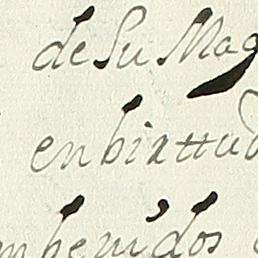 de Su Mag
enbirttud
mbenidos